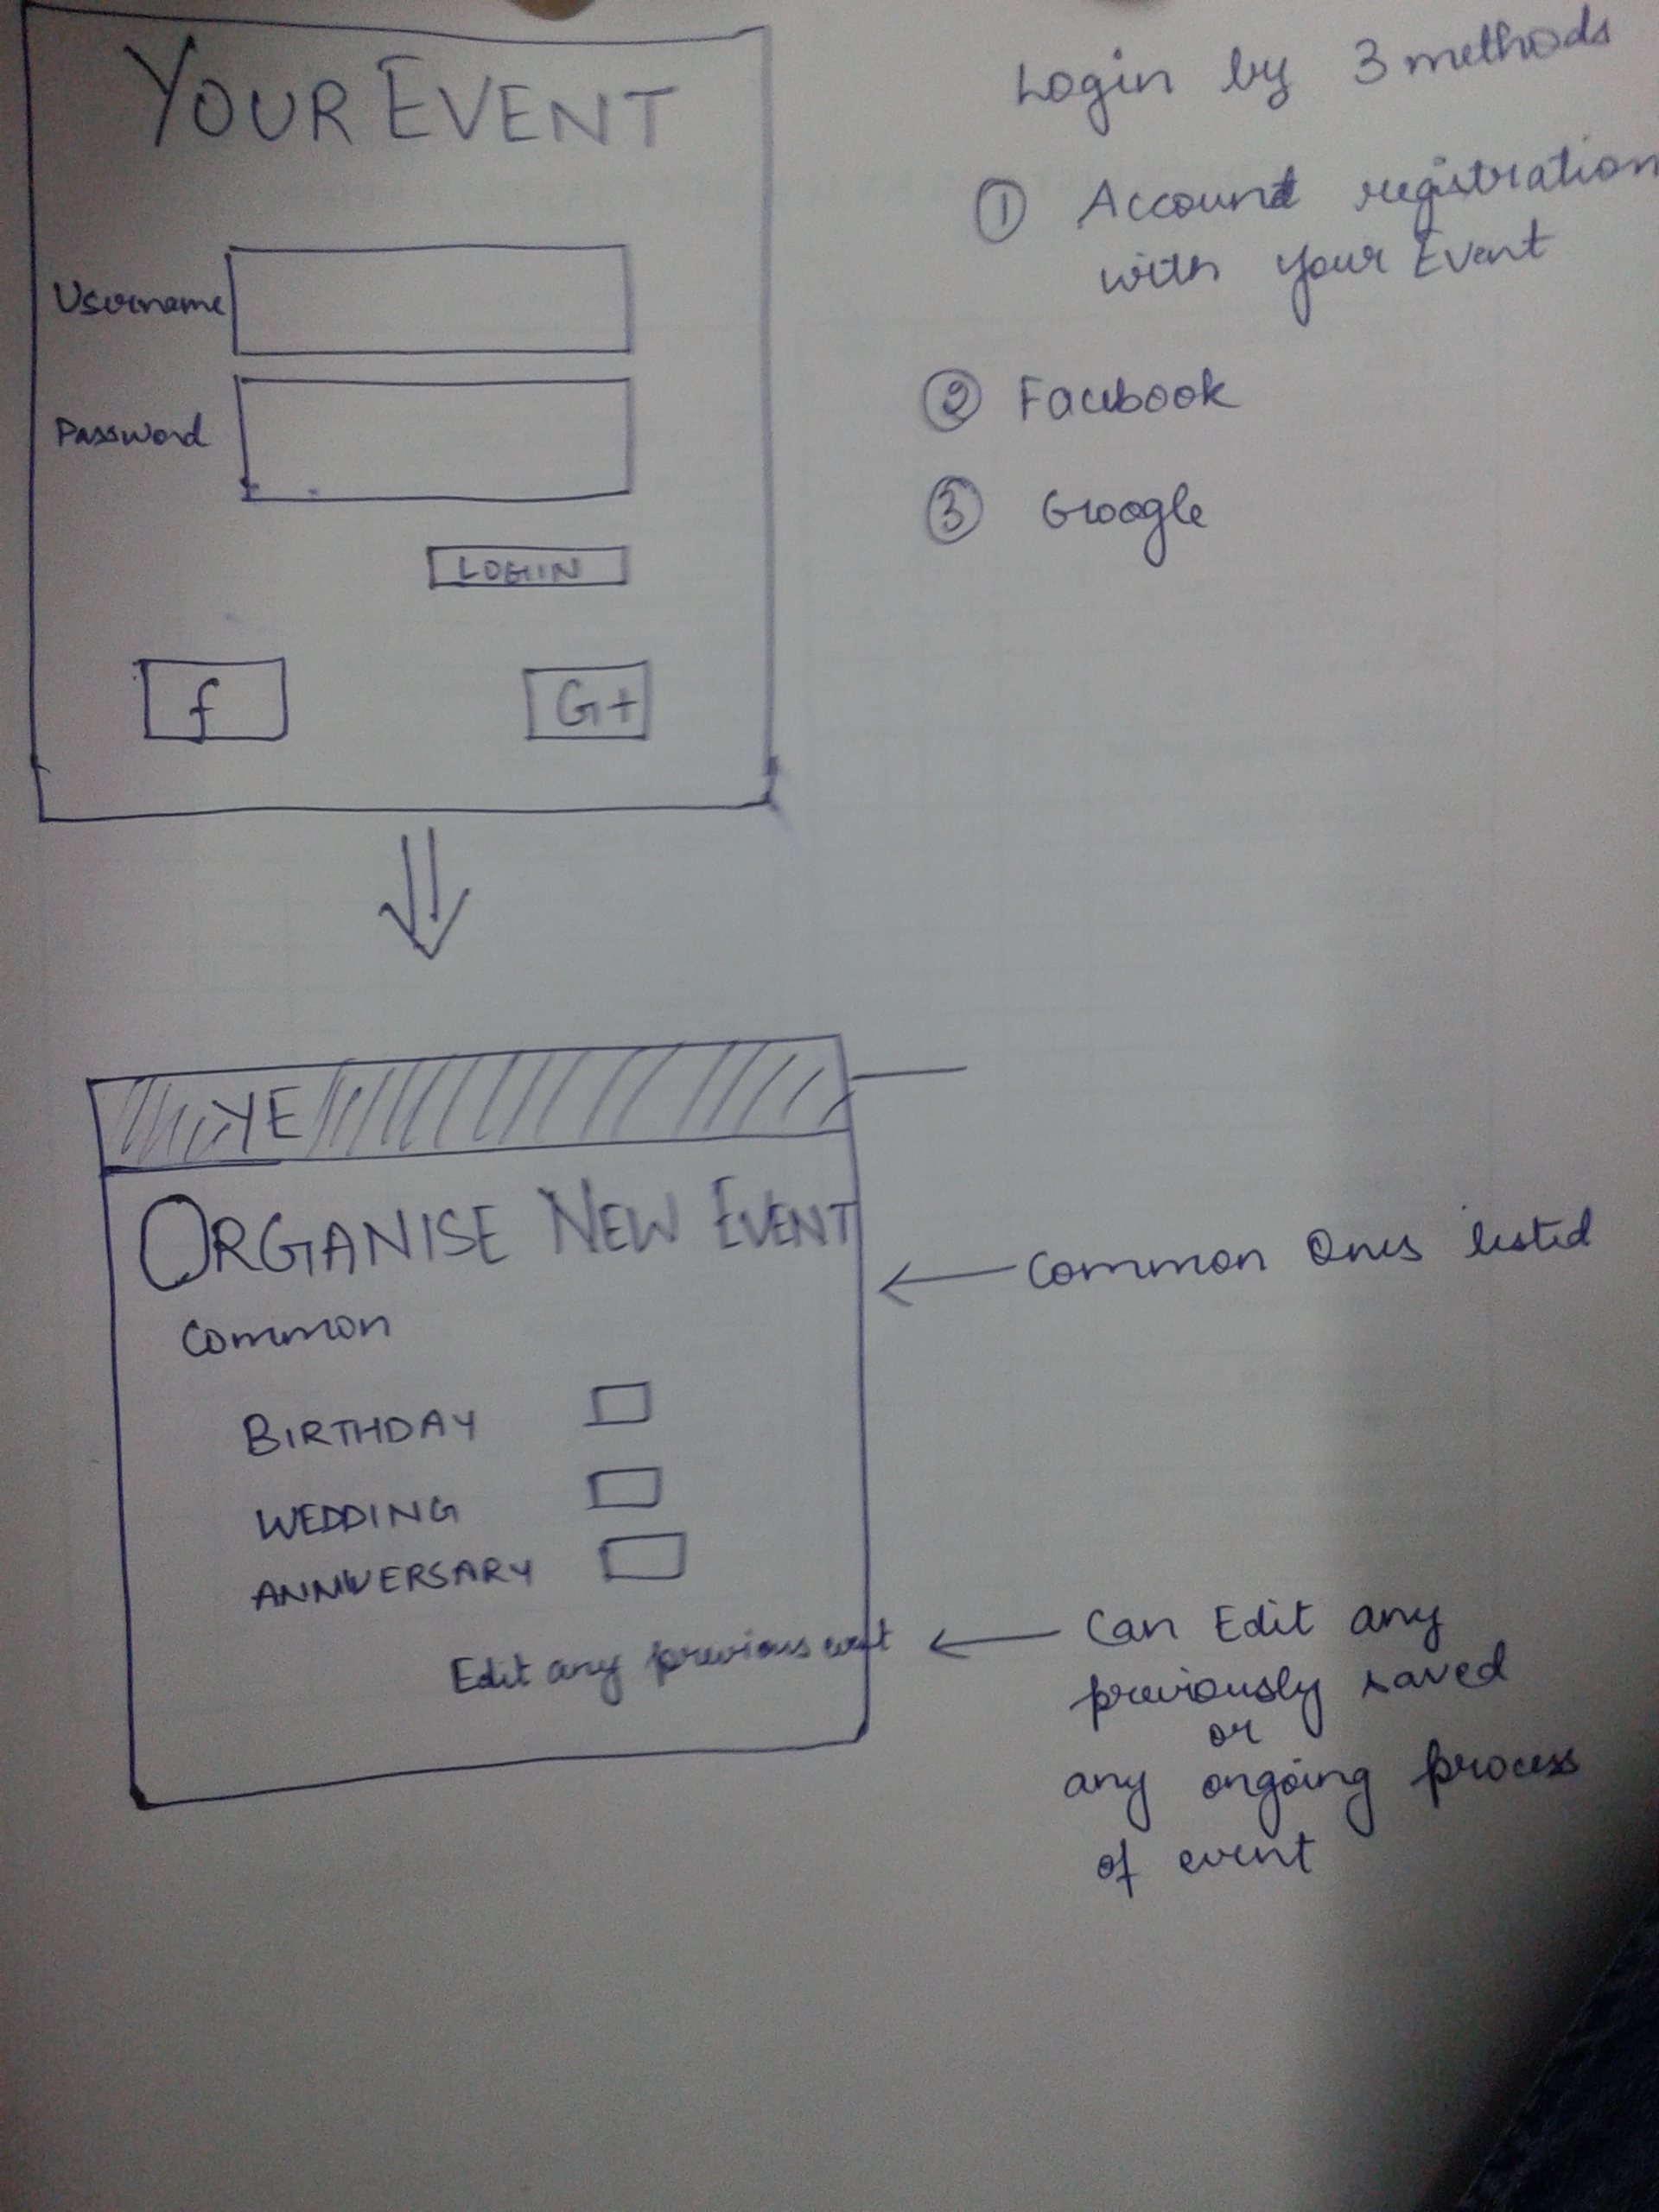 YOUR EVENT
Username
Password
LOGIN
f
G+
Login by 3 methods
① Account registration
with your Event
② Facebook
③ Google
YE
ORGANISE NEW EVENT
Common
BIRTHDAY
WEDDING
ANNIVERSARY
Edit any previous event
Common Ones listed
Can Edit any
previously saved
or
any ongoing process
of event